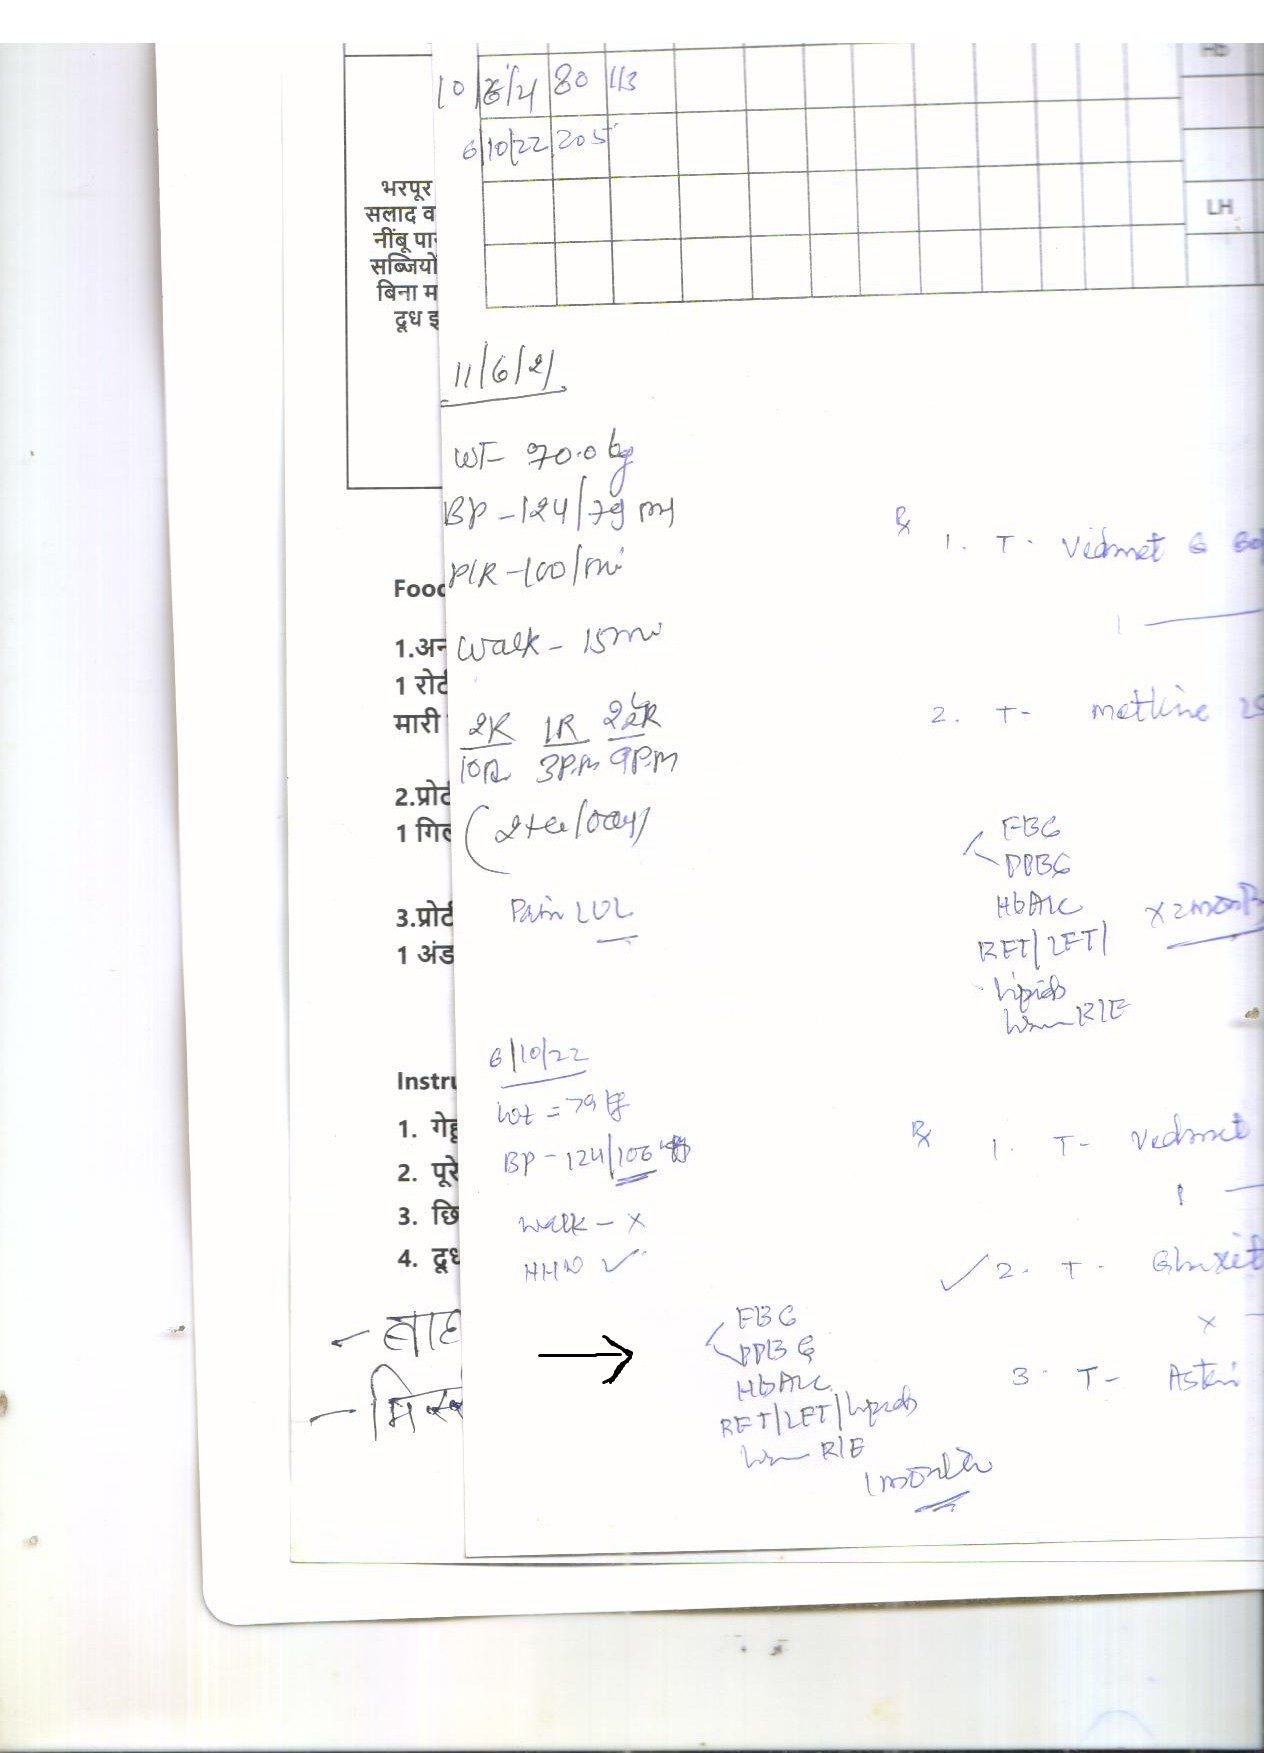 Hb
10/6/21 80 113
6/10/22 205
LH
भरपूर
सलाद व
नींबू पा
सब्जियो
बिना म
दूध इ
11/6/21
WT- 70.0 kg
BP -124/79
P/R -100/mi
Walk - 15 mi
2R 1R
10A 3P.M 9P.M
Pain
Rx
1. T. Vedmet
1
2. T-
FBG
PPBG
HbA1c
RFT/LFT/
lipids
R/E
x 2 month
Food
1.अन
1 रोटी
मारी
2.प्रोट
1 गिल
3.प्रोट
1 अंड
Instru
1. गेहू
2. पूरे
3. छि
4. दूध
6/10/22
Wt = 79 kg
BP - 124/106
Walk - x
Rx
1. T- Vedmet
1
2. T.
x
3. T-
FBG
PPBG
HbA1c
RFT/LFT/lipids
R/E
1 month